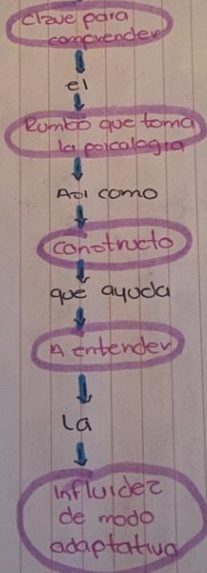 Clave para
comprender
el
Rumbo que toma
la psicología
Así como
constructo
que ayuda
A entender
La
influidez
de modo
adaptativa